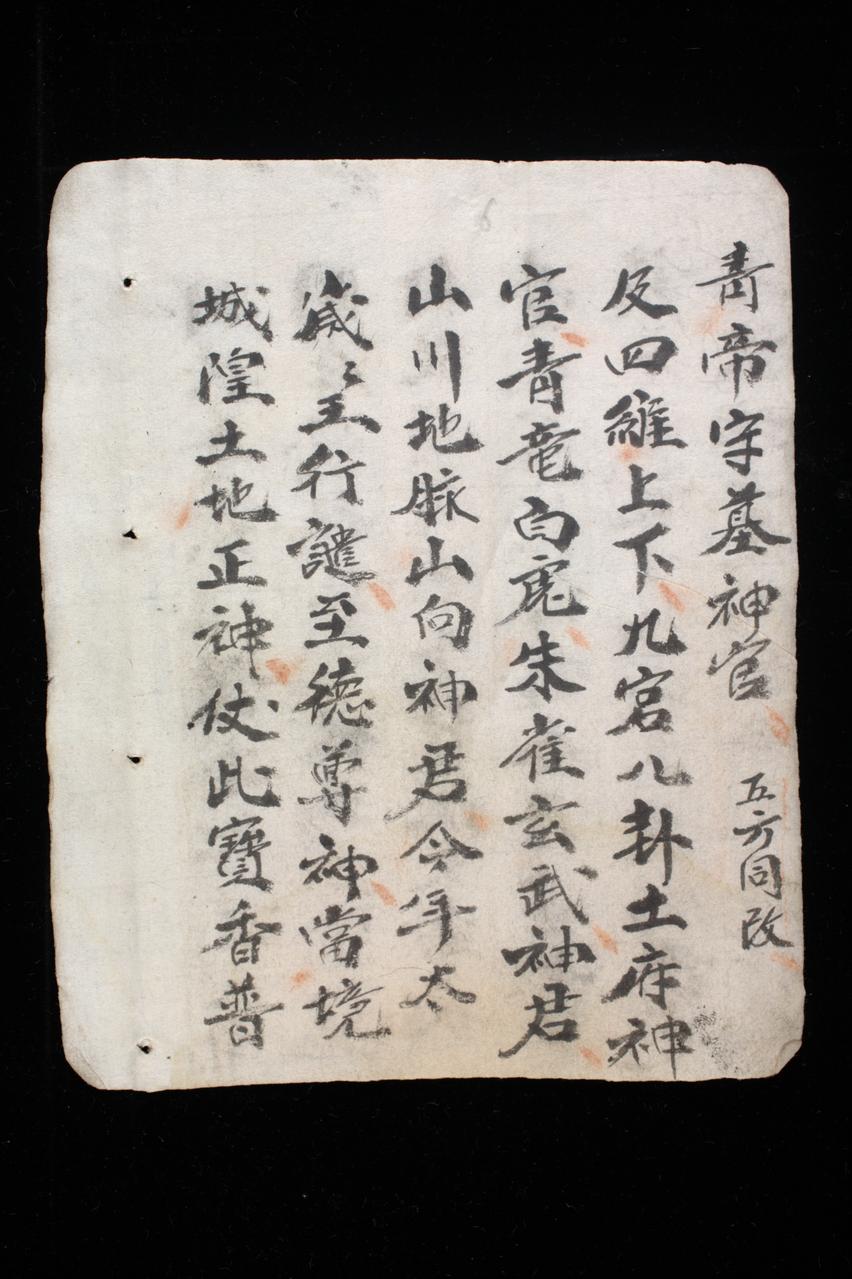 青帝守墓神官 五方同改
及四維上下九宮八卦土府神
官青竜白虎朱雀玄武神君
山川地脉山向神君今年太
歲〻主行譴至德尊神當境
城隍土地正神仗此寶香普
6